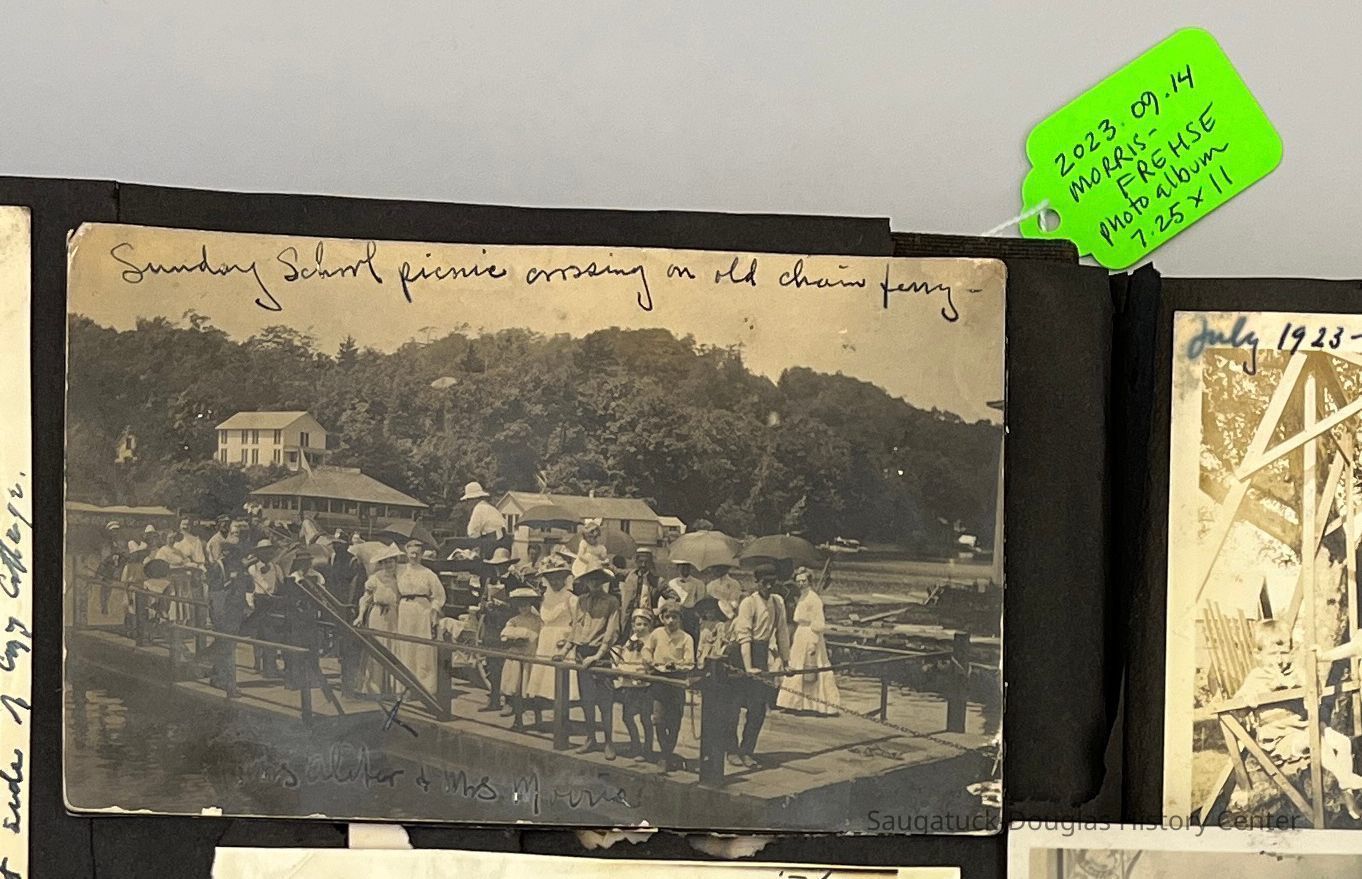 2023.09.14
MORRIS-
FREHSE
photo album
7.25 x 11
Sunday School picnic crossing on old chain ferry -
July 1923-
x
& Mrs Morris
side of
Saugatuck-Douglas History Center